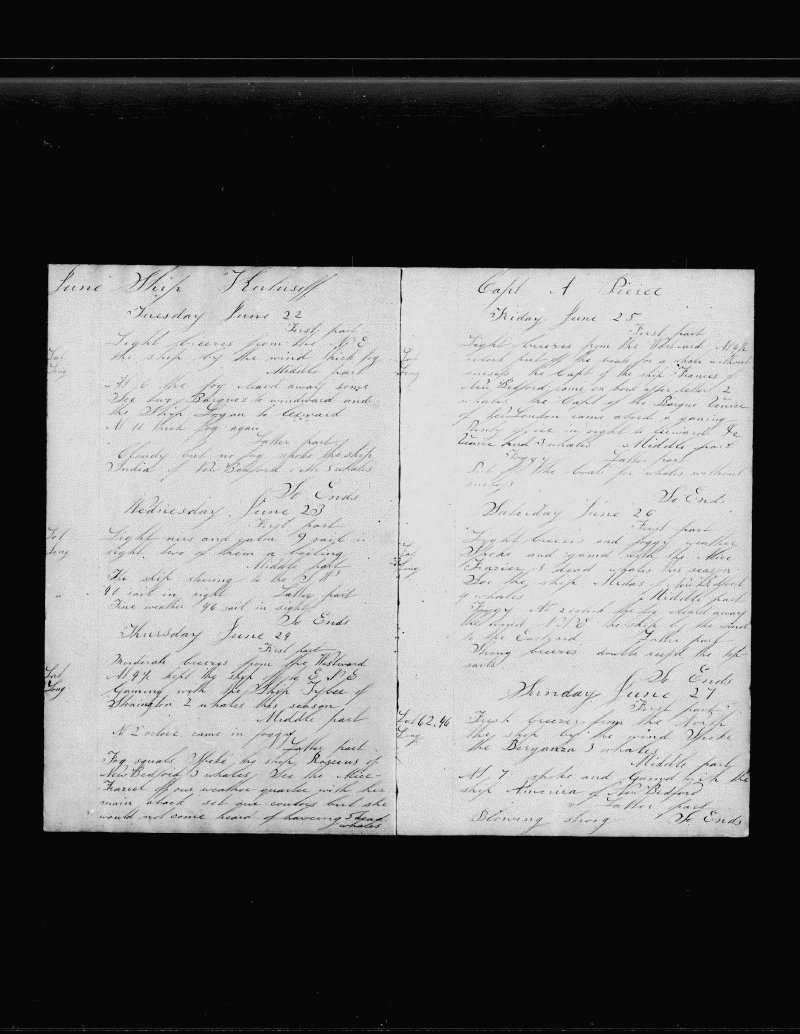 June Ship Kutusoff
Tuesday June 22
First part
Light breezes from the N E
Lat
the ship by the wind thick fog
Long
Middle part
At 6 the fog cleard away some
See two Barques to windward and
the Ship Logan to leeward
At 11 thick fog again
Latter part
Cloudy but no fog spoke the ship
India of New Bedford 5 whales
So Ends
Wednesday June 23
First part
Lat
Light airs and calm 9 sail in
Long
sight two of them a boiling
Middle part
The ship steering to the S W
40 sail in sight Latter part
Fine weather 46 sail in sight
So Ends
Thursday June 24
First part
Moderate breezes from the Westward
Lat
At 4 kept the ship off to E N E
Long
Gaming with the Ship Tybee of
Stonington 2 whales this season
Middle part
At 2 oclock came in foggy
Latter part
Fog squals Spoke the ship Roscius of
New Bedford 3 whales See the Alice
Frazier off our weather quarter with her
main aback set our coulors but she
would not come heard of haveing 5 dead
whales
Capt A Pierce
Friday June 25
First part
Light breezes from the Westward At 4
Lat
oclock put off the boats for a whale without
Long
success the Capt of the ship Frances
New Bedford came on bord after letters 2
whales the Capt of the Barque Tenice
of New London came abord a gaming
Twenty five in sight to leeward the
Tenice had 3 whales Middle part
Foggy Latter part
the boats for whales without
success
So Ends
Saturday June 26
First part
Light breezes and foggy weather
Lat
Spoke and gamd with the Alice
Long
Frazier 5 dead whales this season
See the ship Midas of New Bedford
4 whales Middle part
Foggy At 2 oclock the fog cleard away
the wind N N E the ship by the wind
to the Eastward Latter part
Strong breezes double reefd the top
sails
So Ends
Sunday June 27
First part
Lat 62,46
Fresh breezes from the North
Long
the ship by the wind Spoke
the Berganza 3 whales
Middle part
At 7 spoke and Gamd with the
ship America of New Bedford
Latter part
Blowing strong So Ends